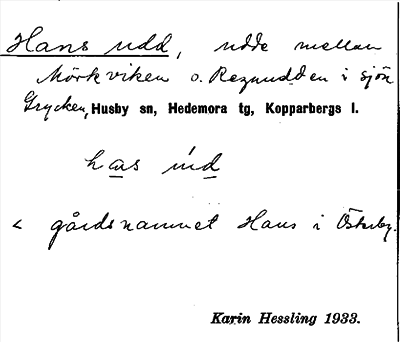 Hans udd, udde mellan
Mörkviken o. Reznudden i sjön
Grycken, Husby sn, Hedemora tg, Kopparbergs l.
has úd
< gårdsnamnet Hans i Österby.
Karin Hessling 1933.